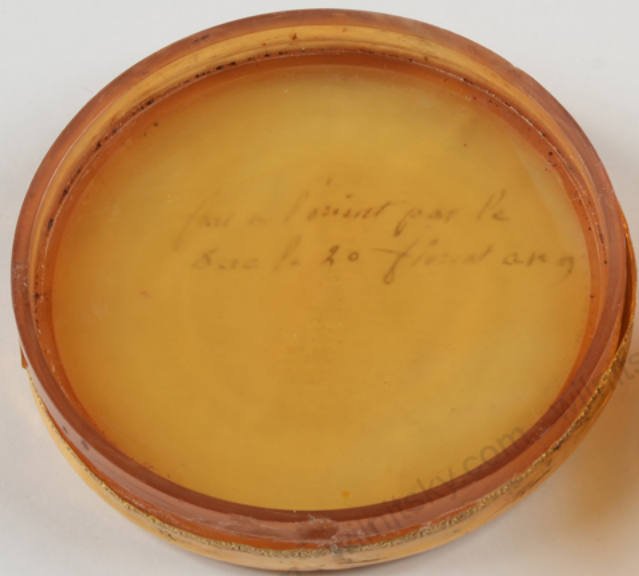 fait a l'orient par le
Duc le 20 floreal an 9